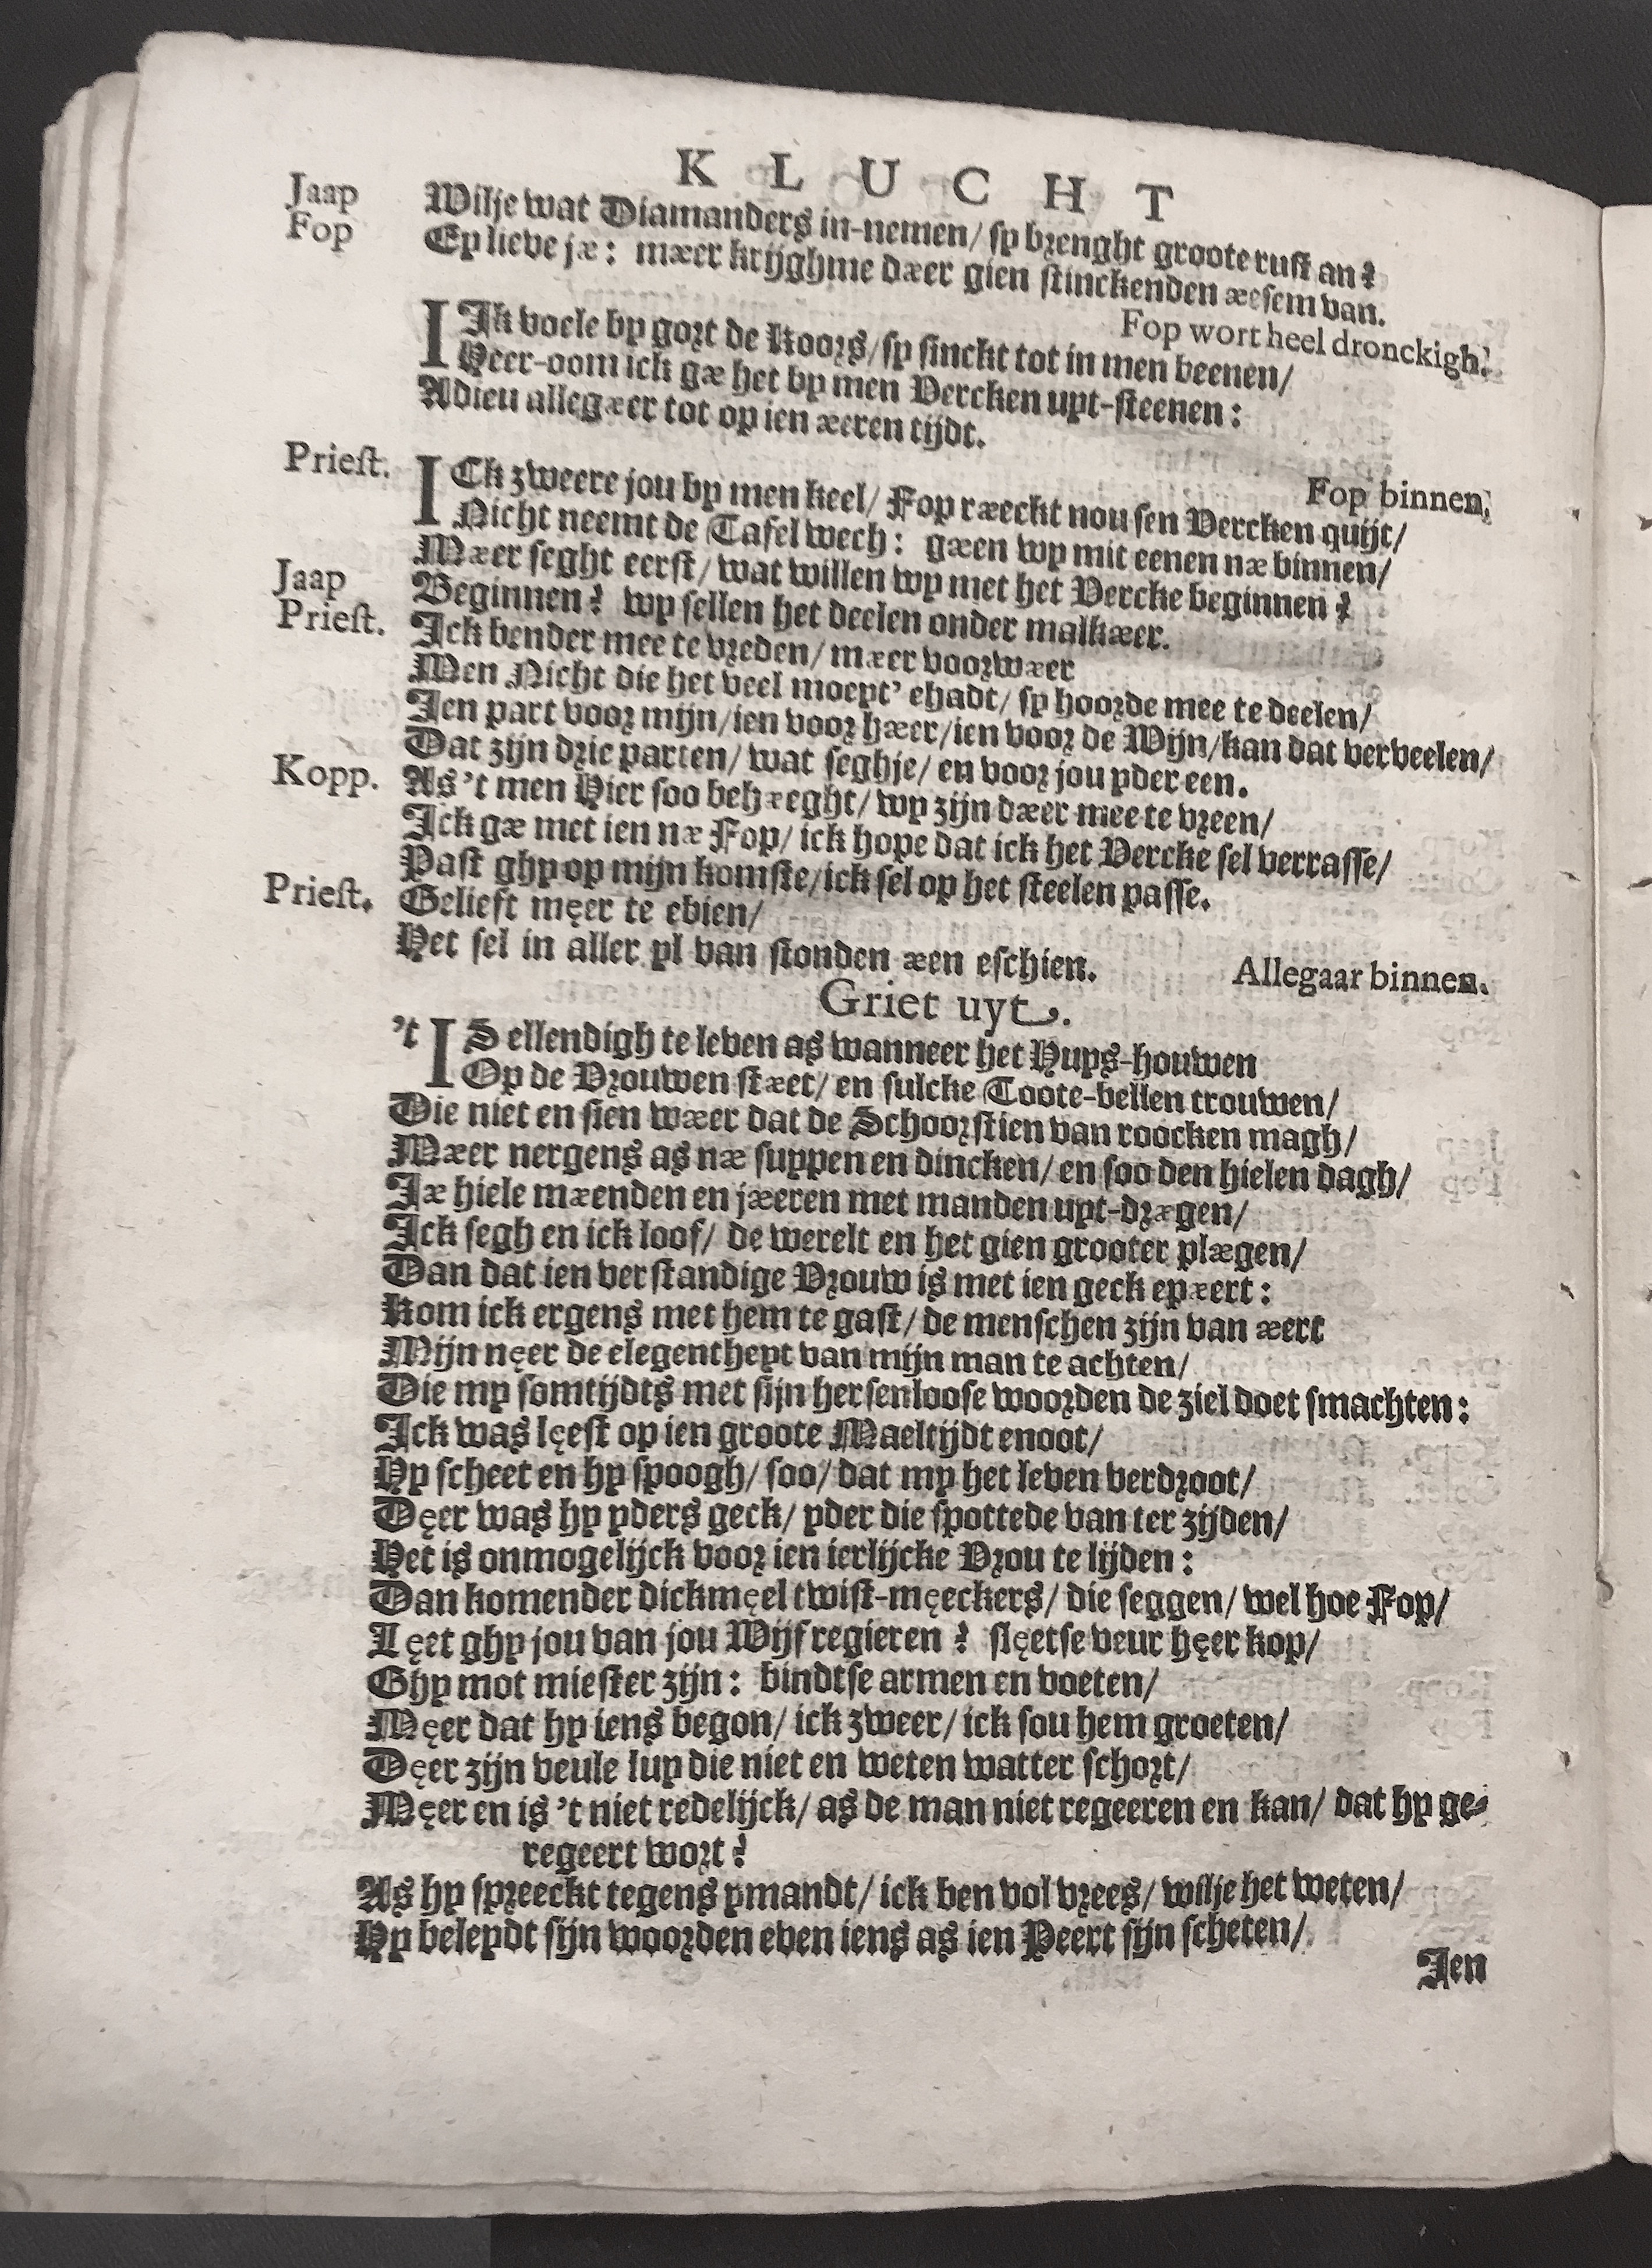 KLUCHT
Jaap Wilje wat Diamanders in-nemen/ sy brenght groote rust an?
Fop Ey lieve jæ: mæer krijghme dæer gien stinckenden æesem van.
Fop wort heel dronckigh.
IIk voele by gort de Koors/ sy sinckt tot in men beenen/
Heer-oom ick gæ het by men Vercken uyt-steenen:
Adieu allegæer tot op ien æeren tijdt.
Fop binnen.
Priest. ICk zweere jou by men keel/ Fop ræeckt nou sen Vercken quijt/
Nicht neemt de Tafel wech: gæen wy mit eenen næ binnen/
Mæer seght eerst/ wat willen wy met het Vercke beginnen?
Jaap Beginnen? wy sellen het deelen onder malkæer.
Priest. Ick bender mee te vreden/ mæer voorwæer
Men Nicht die het veel moeyt' ehadt/ sy hoorde mee te deelen/
Ien part voor mijn/ ien voor hæer/ ien voor de Wijn/ kan dat verveelen/
Dat zijn drie parten/ wat seghje/ en voor jou yder een.
Kopp. As 't men Hier soo behæeght/ wy zijn dæer mee te vreen/
Ick gæ met ien næ Fop/ ick hope dat ick het Vercke sel verrasse/
Past ghy op mijn komste/ ick sel op het steelen passe.
Priest. Gelieft męer te ebien/
Het sel in aller yl van stonden æen eschien.
Allegaar binnen.
Griet uyt.
't IS ellendigh te leven as wanneer het Huys-houwen
Op de Vrouwen stæet/ en sulcke Toote-bellen trouwen/
Die niet en sien wæer dat de Schoorstien van roocken magh/
Mæer nergens as næ suypen en dincken/ en soo den hielen dagh/
Jæ hiele mæenden en jæeren met manden uyt-drægen/
Ick segh en ick loof/ de werelt en het gien grooter plægen/
Dan dat ien verstandige Vrouw is met ien geck epæert:
Kom ick ergens met hem te gast/ de menschen zijn van æert
Mijn nęer de elegentheyt van mijn man te achten/
Die my somtijdts met sijn hersenloose woorden de ziel doet smachten:
Ick was lęest op ien groote Maeltijdt enoot/
Hy scheet en hy spoogh/ soo/ dat my het leven verdroot/
Dęer was hy yders geck/ yder die spottede van ter zijden/
Het is onmogelijck voor ien ierlijcke Vrou te lijden:
Dan komender dickmęel twist-męeckers/ die seggen/ wel hoe Fop/
Lęet ghy jou van jou Wijf regieren? slęetse veur hęer kop/
Ghy mot miester zijn: bindtse armen en voeten/
Męer dat hy iens begon/ ick zweer/ ick sou hem groeten/
Dęer zijn veule luy die niet en weten watter schort/
Męer en is 't niet redelijck/ as de man niet regeeren en kan/ dat hy ge-
regeert wort?
As hy spreeckt tegens ymandt/ ick ben vol vrees/ wilje het weten/
Hy beleydt sijn woorden even iens as ien Peert sijn scheten/
Ien